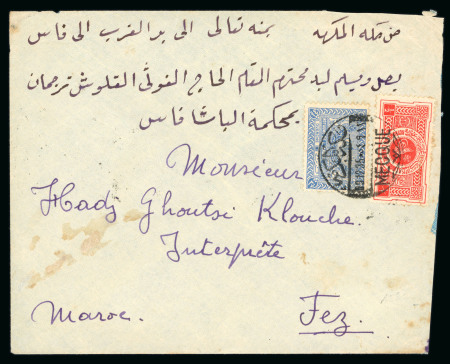 من مكة المكرمه بمنه تعالى الى بر الغرب الى فاس
يصل ويسلم ليد محترم المقام الحاج الغوثي القلوش ترجمان
بمحكمة الباشا فاس
Monsieur
Hadj Ghoutsi Klouche.
Interprète
Maroc. Fez.
MECQUE